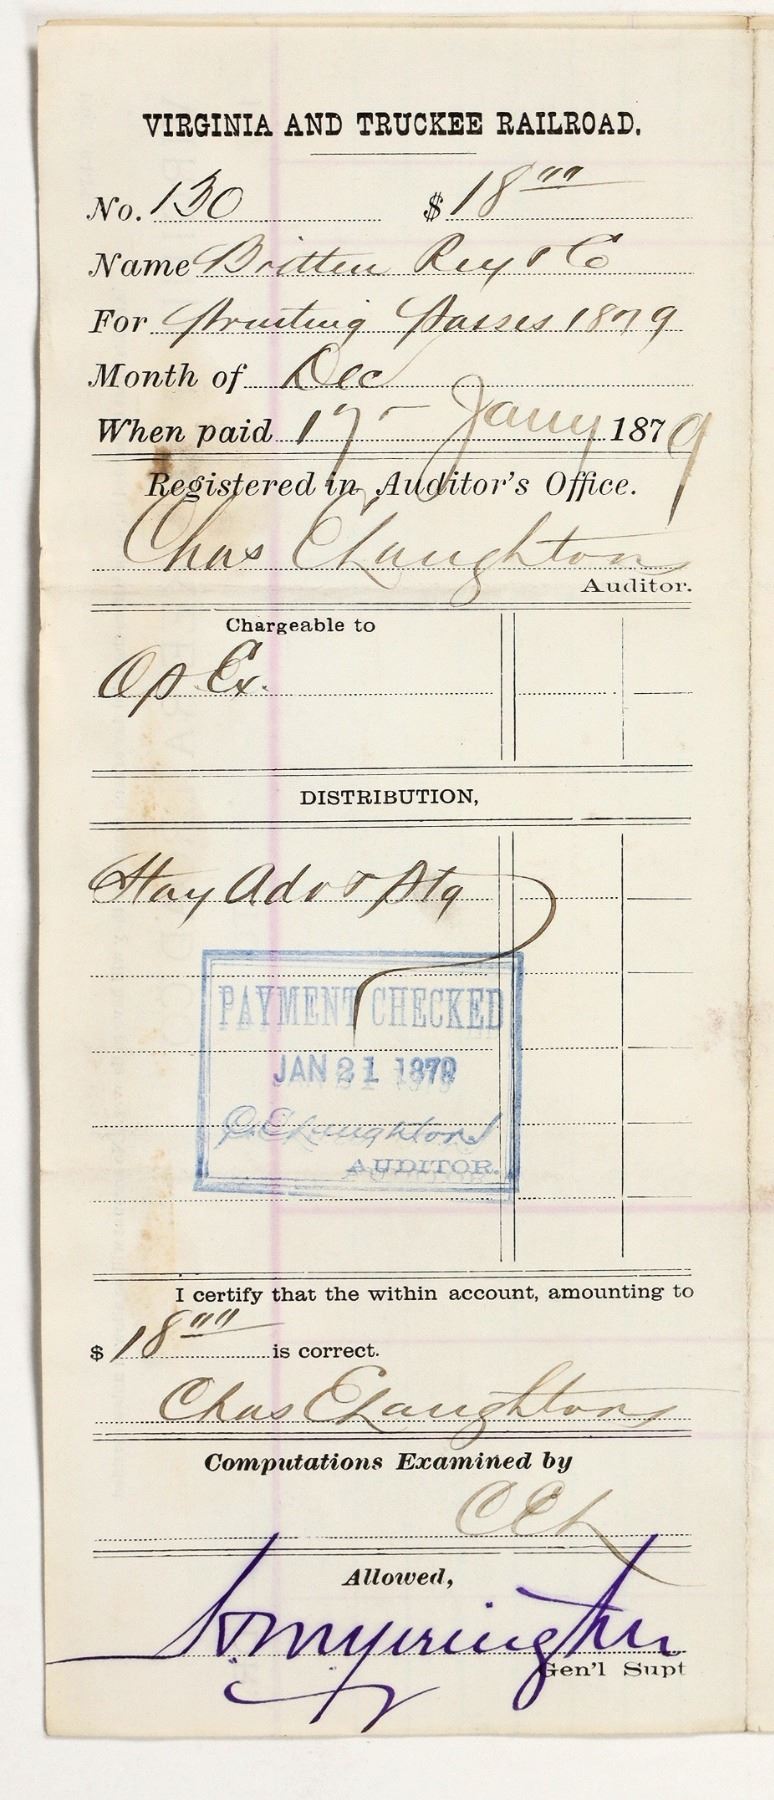 VIRGINIA AND TRUCKEE RAILROAD.
No. 130 $ 18 00
Name Britten Rey & C
For Printing Passes 1879
Month of Dec
When paid 17 - Jany 1879
Registered in Auditor's Office.
Chas E Laughton
Auditor.
Chargeable to
Op. Ex.
DISTRIBUTION,
Stay Adv & Ptg
PAYMENT CHECKED
JAN 21 1879
C. E. Laughton
AUDITOR.
I certify that the within account, amounting to
$ 18 00 is correct.
Chas E Laughton
Computations Examined by
CEL
Allowed,
H M Yerington
Gen'l Supt